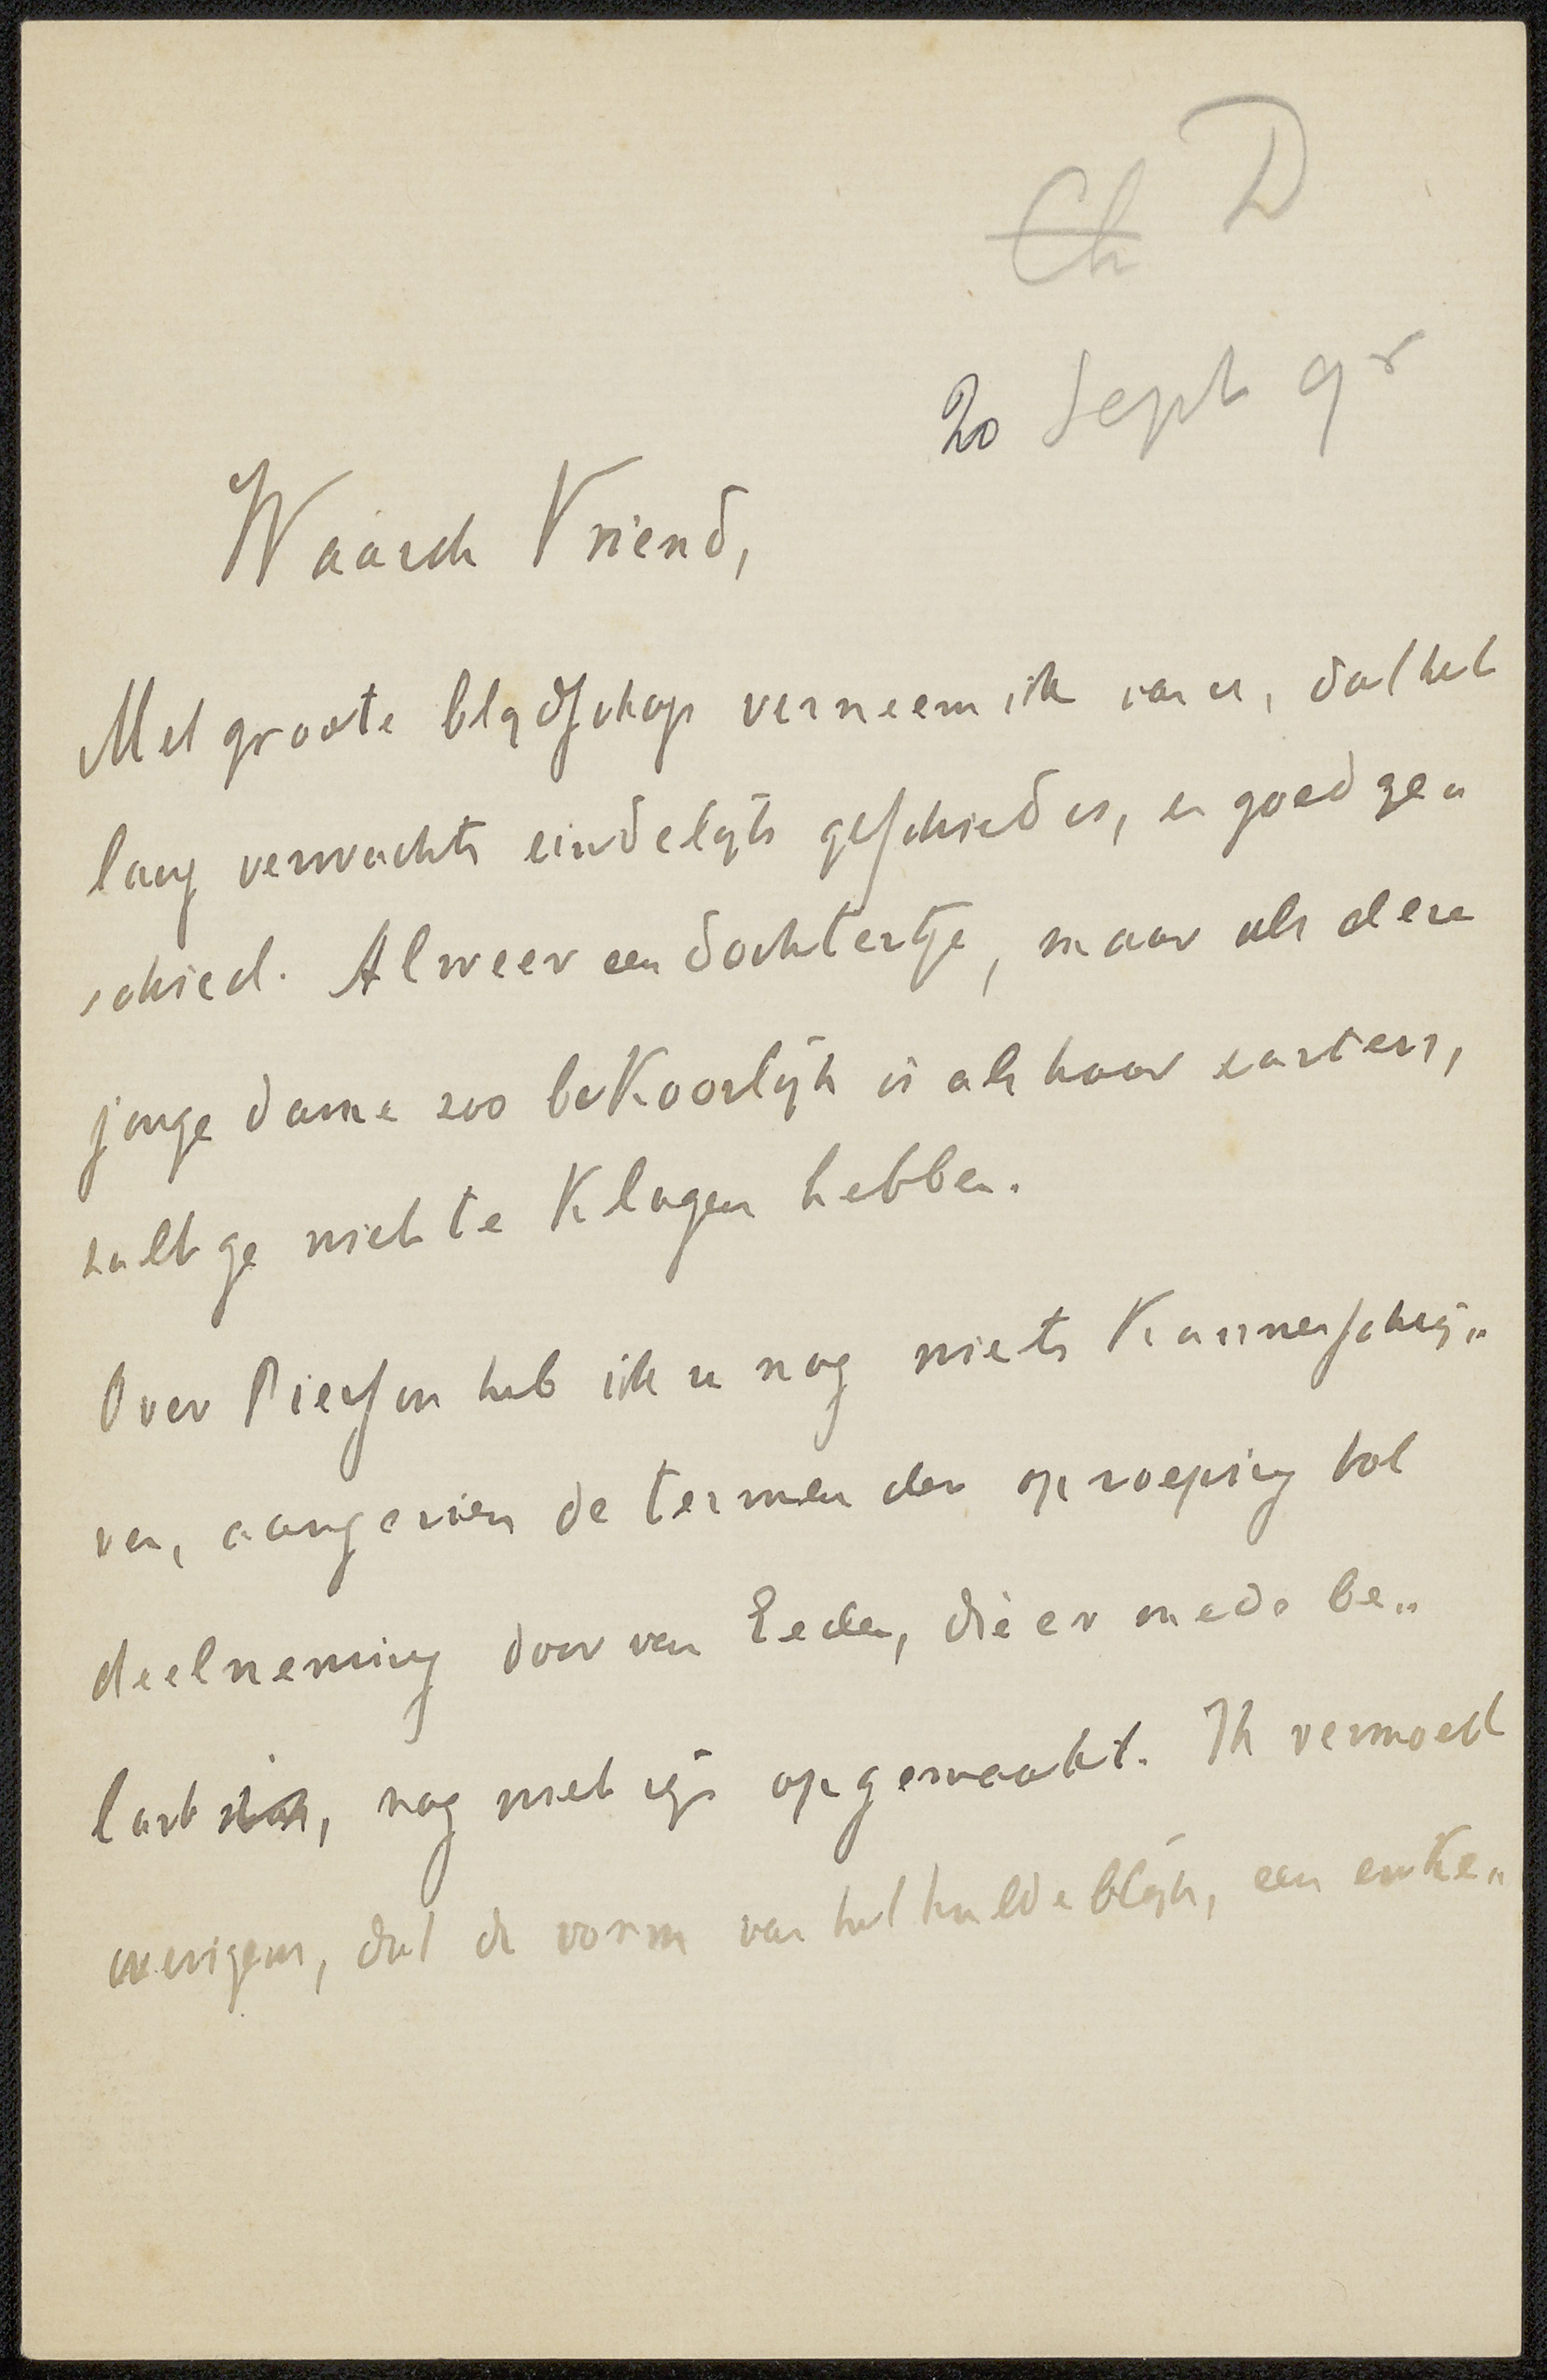 Ch D
20 Sept 9
Waarde Vriend,
Met groote blijdschap verneem ik van u, dat het
lang verwachte eindelijk geschied is, en goed ge„
schied. Alweer een dochtertje, maar als deze
jonge dame zoo beKoorlijk is als haar zusters,
zult ge niet te Klagen hebben.
Over Pierson heb ik u nog niets Kunnen schrij„
ven, aangezien de termen der oproeping tot
deelneming door van Eeden, die er mede be„
last is, nog niet zijn opgemaakt. Ik vermoed
overigens, dat de vorm van het huldeblijk, een enKe„